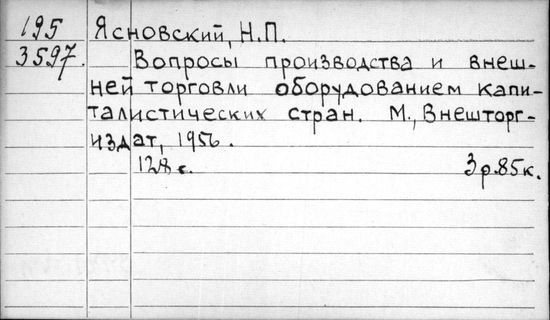 195 Ясновский, Н.П.
3597. Вопросы производства и внеш-
ней торговли оборудованием капи-
талистических стран. М., Внешторг-
издат, 1956.
128 с. 3 р.85к.